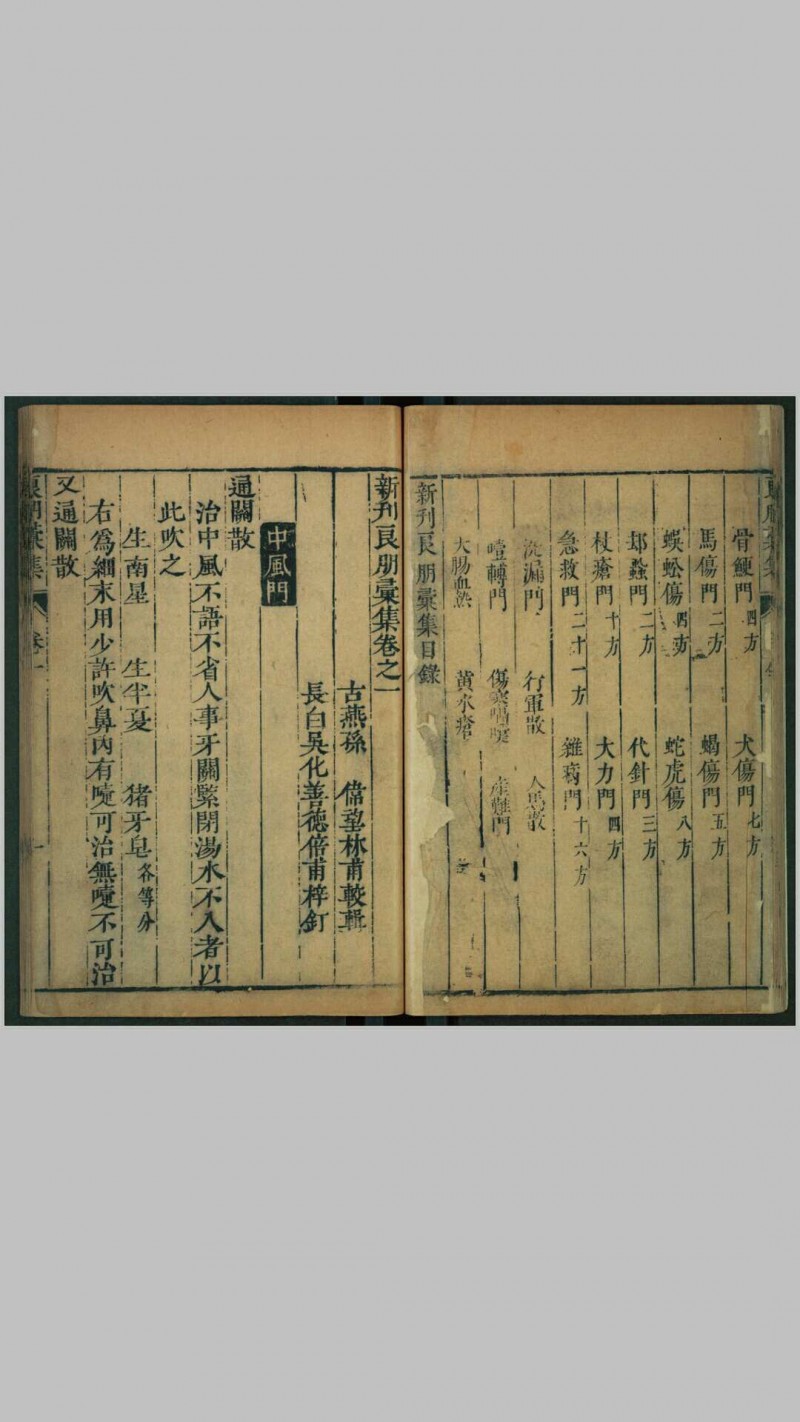 骨鯁門四方 犬傷門七方
馬傷門二方 蝎傷門五方
蜈蚣傷四方 蛇虎傷八方
邪蟲門二方 代針門三方
杖瘡門十方 大力門四方
急救門二十一方 雜病門十六方
漏門 行軍散 人馬散
轉門 傷寒 產難門
大腸血 黄水瘡
新刊良朋彙集目録
新刊良朋彙集卷之一
古燕孫 偉望林甫較輯
長白吳化善德倍甫梓釘
中風門
通關散
治中風不語不省人事牙關緊閉湯水不入者以
此吹之
生南星 生半夏 猪牙皂各等分
右為細末用少許吹鼻內有嚏可治無嚏不可治
又通關散
良朋彙集 卷一 一